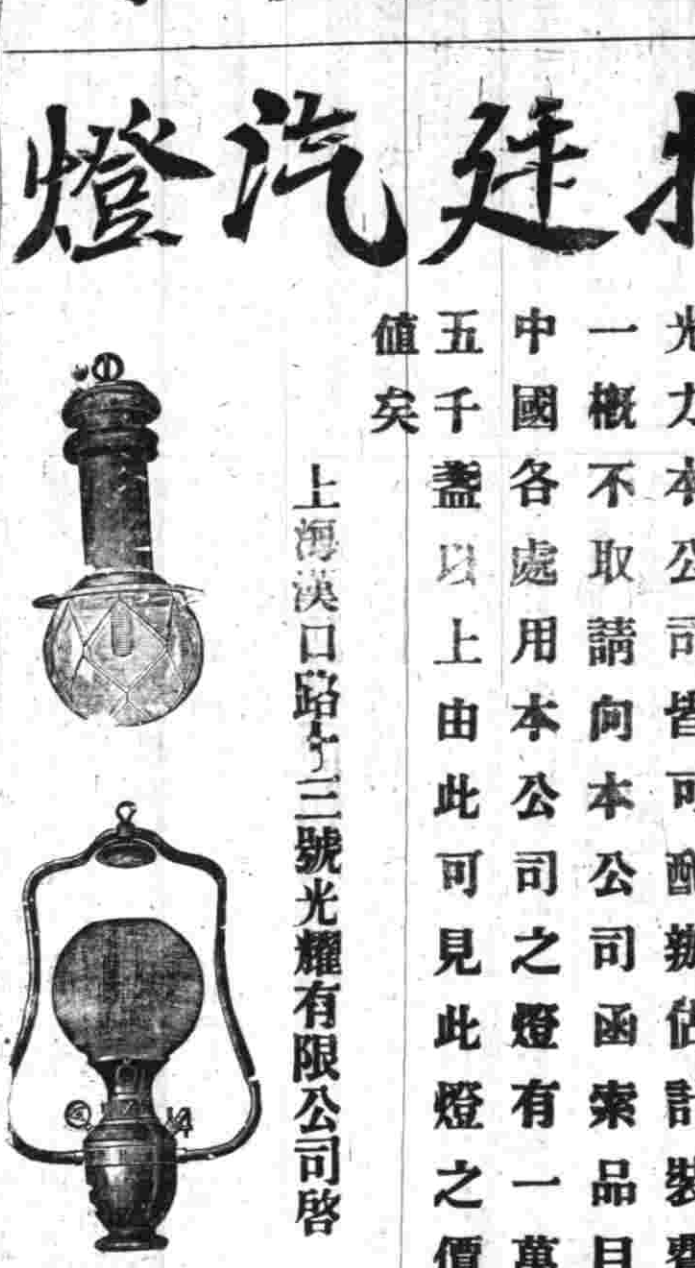 廷汽燈
光力本公司皆可辦估計裝費
一概不取請向本公司函索品目
中國各處用本公司之燈有一萬
五千盞以上由此可見此燈之價
值矣
上海漢口路十三號光耀有限公司啓